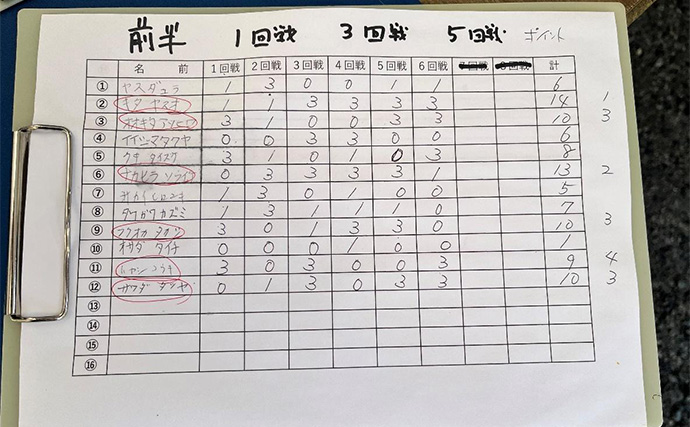 前半 1回戦 3回戦 5回戦 ポイント
名 前 1回戦 2回戦 3回戦 4回戦 5回戦 6回戦 計
① ヤスダユウ 1 3 0 0 1 1 6
② キタ ヤスオ 1 1 3 3 3 3 14 1
③ オオキタアツヒロ 3 1 0 0 3 3 10 3
④ 0 0 3 3 0 0 6
⑤ ウキ タイスケ 3 1 0 1 0 3 8
⑥ ナカヒラ ソウイチ 0 3 3 3 3 1 13 2
⑦ 1 3 0 1 0 0 5
⑧ タワガワ カズミ 1 3 1 1 1 0 7
⑨ フクオカ タカシ 3 0 1 3 3 0 10 3
⑩ オサダ タイチ 0 0 0 1 0 0 1
⑪ ハヤシ コウキ 3 0 3 0 0 3 9 4
⑫ サワダ タツヤ 0 1 3 0 3 3 10 3
⑬
⑭
⑮
⑯